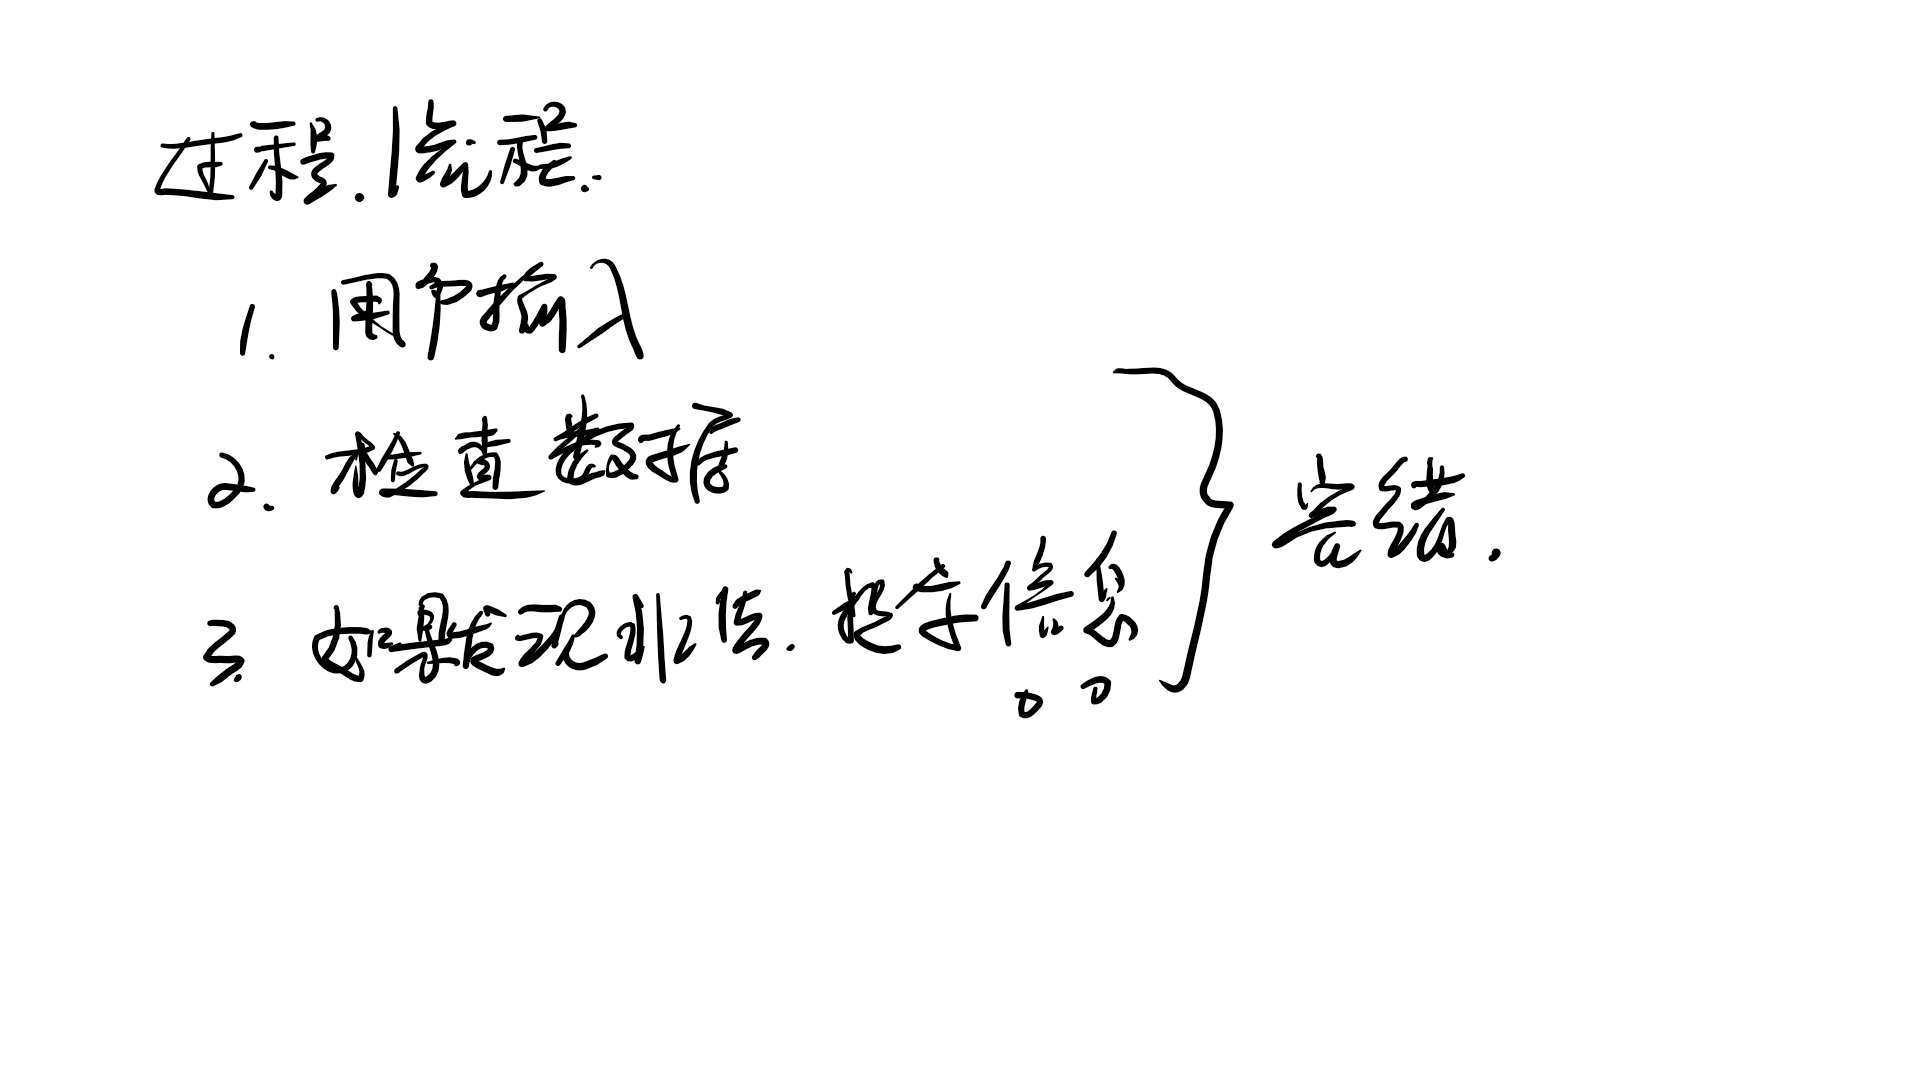 过程.流程.
1. 用户输入
2. 检查数据
3. 如果发现非法.提示信息
完结.